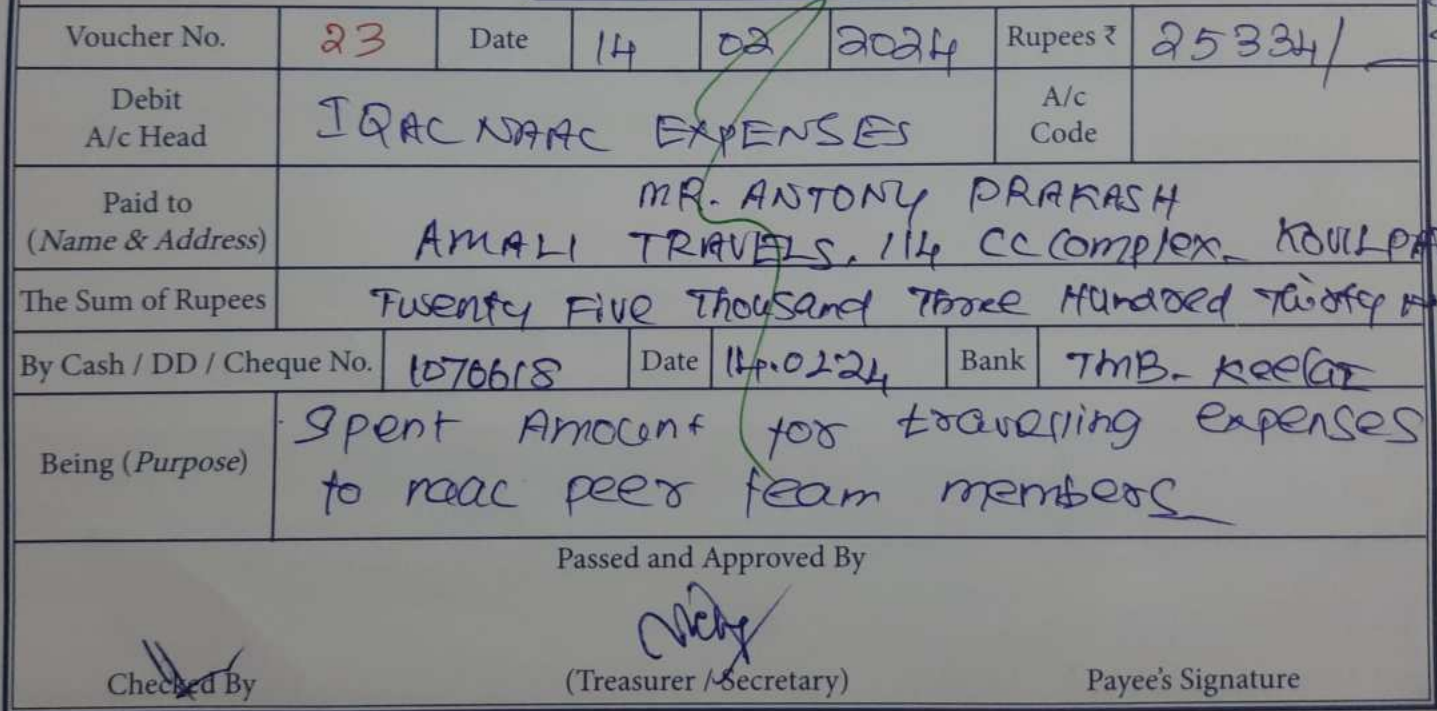 Voucher No. 23 Date 14 02 2024 Rupees ₹ 25334/
Debit A/c Head IQAC NAAC EXPENSES A/c Code
Paid to MR. ANTONY PRAKASH
(Name & Address) AMALI TRAVELS. 114 CC Complex. KOVILPA
The Sum of Rupees Twenty Five Thousand Three Hundred Thirty
By Cash / DD / Cheque No. 1070618 Date 14.02.24 Bank TMB-
Being (Purpose) Spent Amount for travelling expenses
to naac peer team members
Passed and Approved By
Checked By (Treasurer / Secretary) Payee's Signature